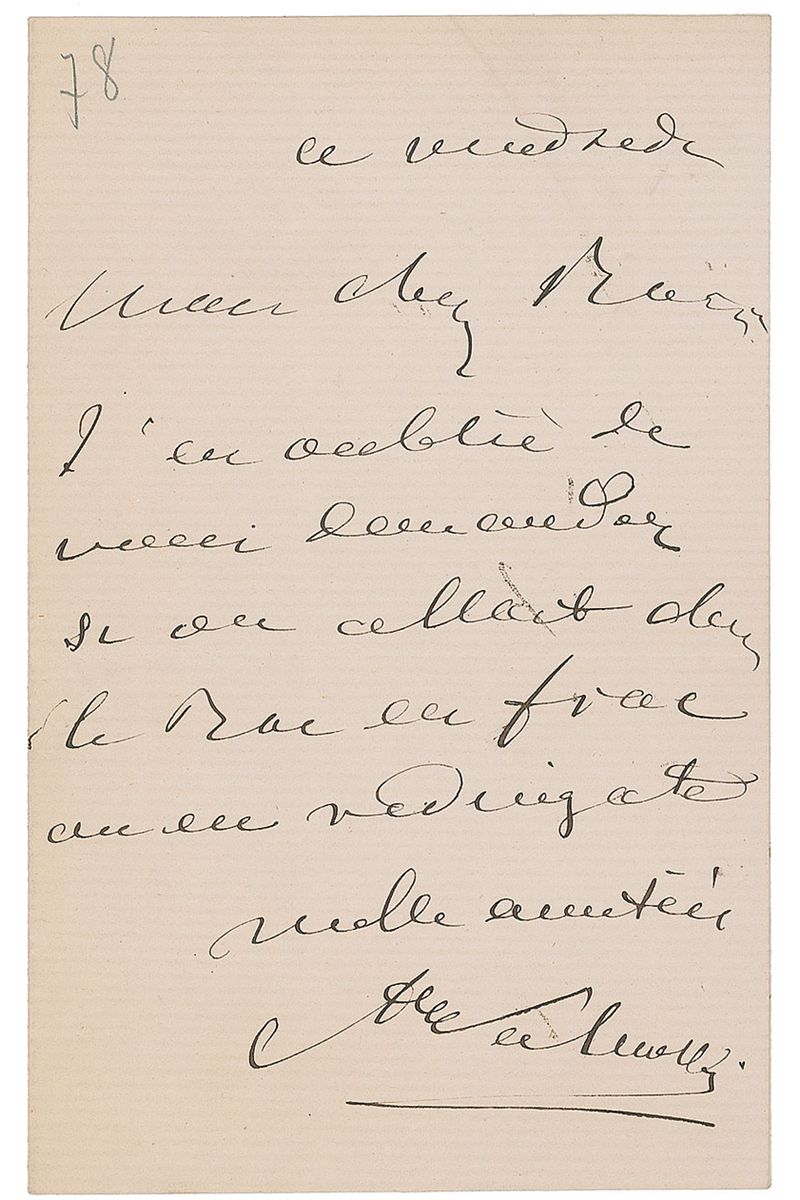 78
ce vendredi
mon cher
J'ai oublié de
vous demander
si on allait chez
le Roi en frac
ou en redingote
mille amitiés